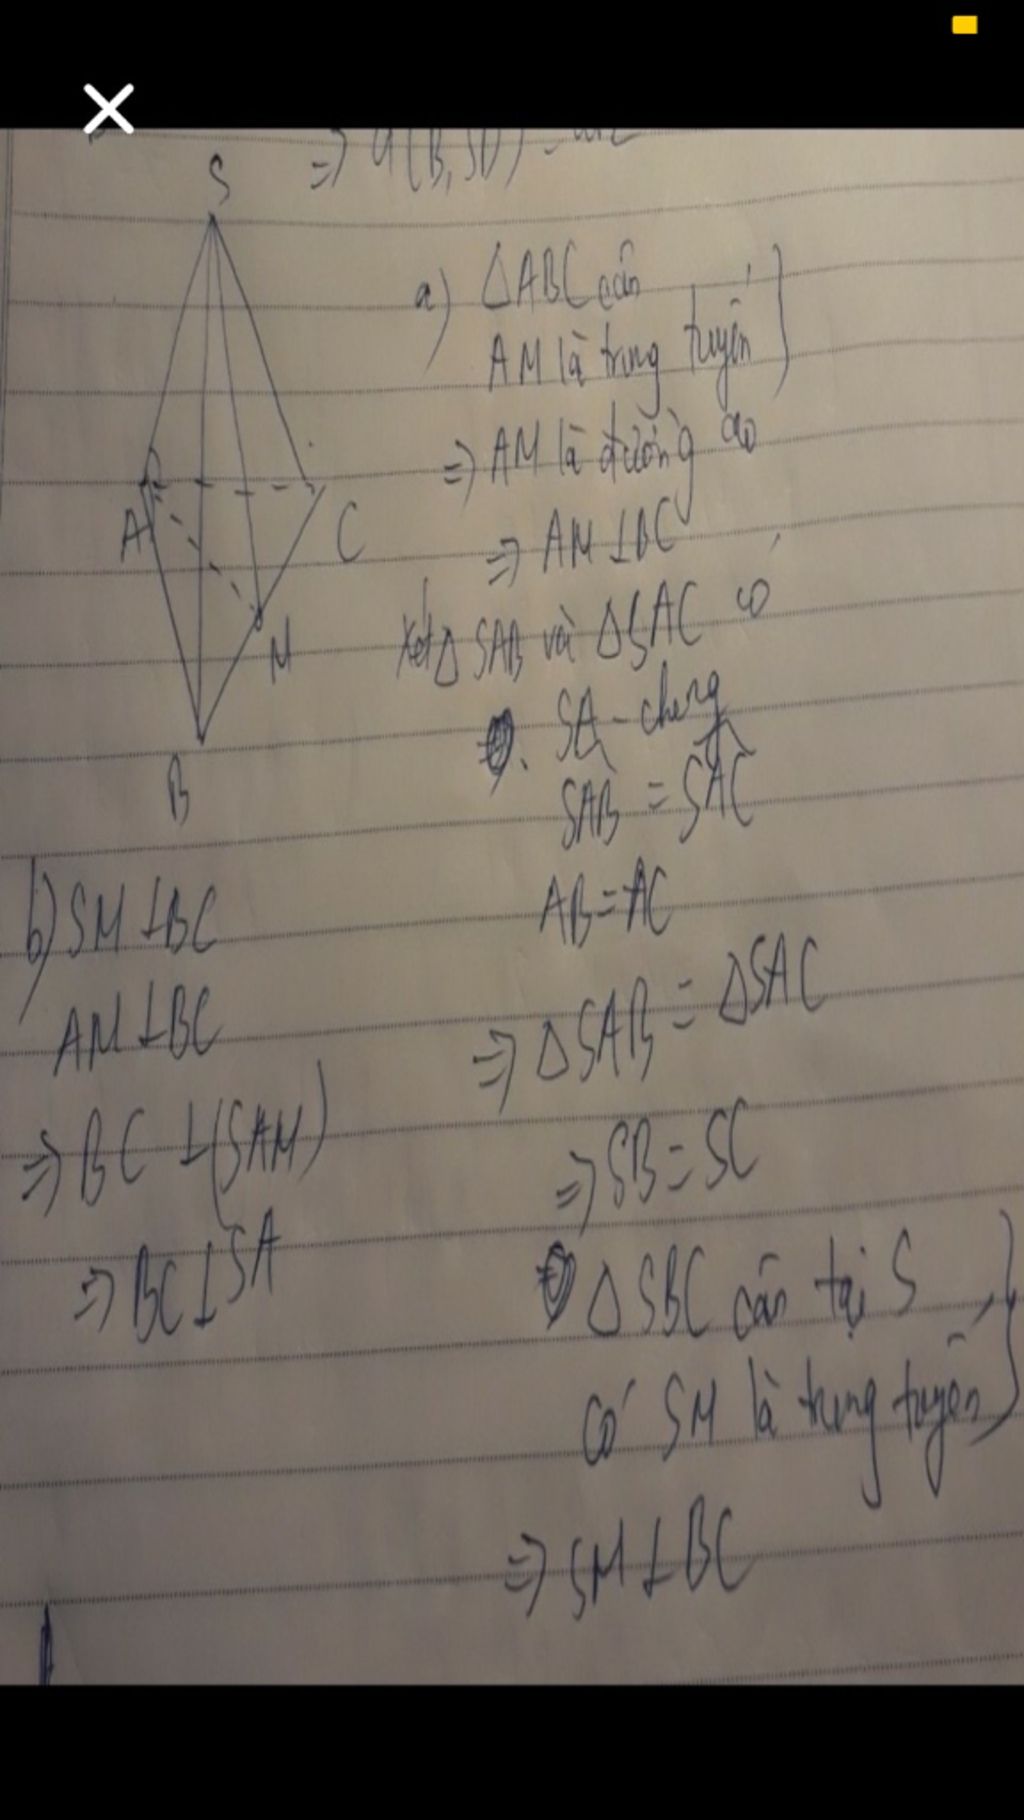 => d(B, SD) =
S
A
C
M
B
a) ΔABC cân
AM là trung tuyến }
=> AM là đường cao
=> AM ⊥ BC
Xét Δ SAB và Δ SAC có
SA - chung
SAB = SAC
AB = AC
=> Δ SAB = Δ SAC
=> SB = SC
Δ SBC cân tại S
có SM là trung tuyến }
=> SM ⊥ BC
b) SM ⊥ BC
AM ⊥ BC
=> BC ⊥ (SAM)
=> BC ⊥ SA